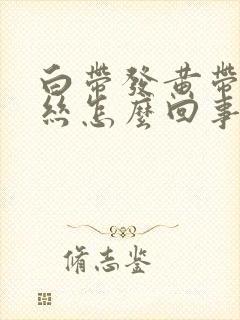 白帶發黃帶
絲怎麼回事
脩志鉴